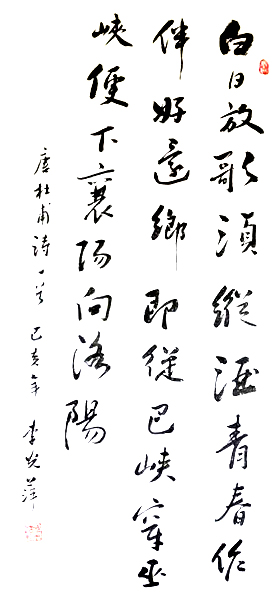 白日放歌須縱酒青春作
伴好還鄉即從巴峽穿巫
峽便下襄阳向洛陽
唐杜甫詩一首 己亥年 李光萍